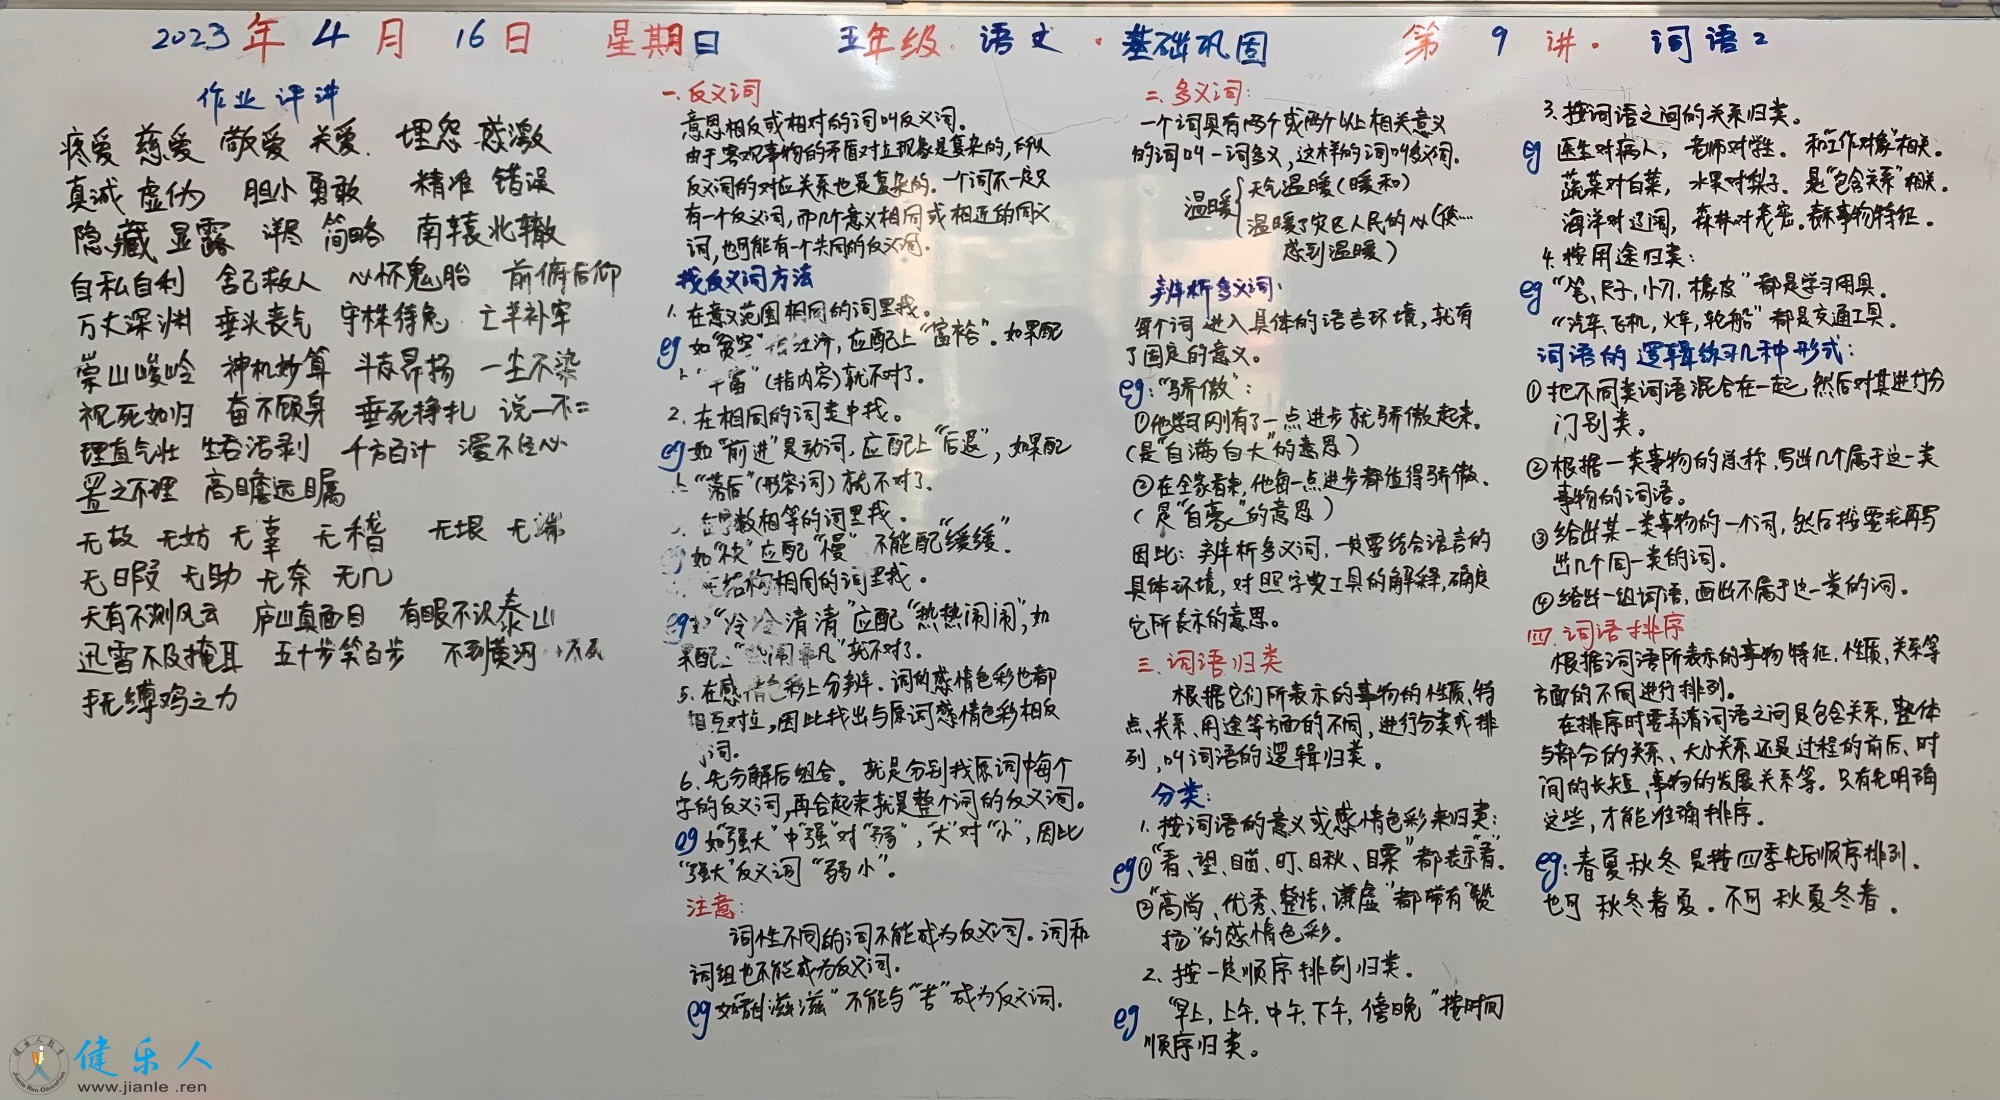 2023年4月16日 星期日 五年级.语文.基础巩固 第9讲.词语2
作业评讲
疼爱 慈爱 敬爱 关爱. 埋怨 感激
真诚 虚伪 胆小 勇敢 精准 错误
隐藏 显露 详尽 简略 南辕北辙
自私自利 舍己救人 心怀鬼胎 前俯后仰
万丈深渊 垂头丧气 守株待兔 亡羊补牢
崇山峻岭 神机妙算 斗志昂扬 一尘不染
视死如归 奋不顾身 垂死挣扎 说一不二
理直气壮 生吞活剥 千方百计 漫不经心
置之不理 高瞻远瞩
无故 无妨 无辜 无稽 无垠 无端
无暇 无助 无奈 无几
天有不测风云 庐山真面目 有眼不识泰山
迅雷不及掩耳 五十步笑百步 不到黄河
手无缚鸡之力
一.反义词
意思相反或相对的词叫反义词。
由于客观事物的矛盾对立现象是复杂的,所以
反义词的对应关系也是复杂的.一个词不一定只
有一个反义词,而几个意义相同或相近的同义
词,也可能有一个共同的反义词.
找反义词方法
1.在意义范围相同的词里找。
eg 如"贫穷"指经济,应配上"富裕"。如果配
"丰富"(指内容)就不对了.
2.在相同的词类中找。
eg 如"前进"是动词,应配上"后退",如果配
"落后"(形容词)就不对了.
字数相等的词里找.
如"快"应配"慢"不能配"缓缓".
结构相同的词里找.
eg "冷冷清清"应配"热热闹闹",如
果配上"热闹非凡"就不对了.
5.在感情色彩上分辨.词的感情色彩也都
相互对立,因此找出与原词感情色彩相反
词.
6.先分解后组合。就是分别找原词中每个
字的反义词,再合起来就是整个词的反义词。
eg 如"强大"中"强"对"弱","大"对"小",因此
"强大"反义词"弱小".
注意:
词性不同的词不能成为反义词.词和
词组也不能成为反义词.
eg 如"甜滋滋"不能与"苦"成为反义词.
二.多义词:
一个词具有两个或两个以上相关意义
的词叫一词多义,这样的词叫多义词.
温暖 天气温暖(暖和)
温暖了灾区人民的心(使....
感到温暖)
辨析多义词.
每个词进入具体的语言环境,就有
了固定的意义。
eg:"骄傲":
①他学习刚有了一点进步就骄傲起来.
(是"自满自大"的意思)
②在全家看来,他每一点进步都值得骄傲.
(是"自豪"的意思)
因此:辨析多义词,一定要结合语言的
具体环境,对照字典工具的解释,确定
它所表示的意思。
三.词语归类
根据它们所表示的事物的性质、特
点、关系、用途等方面的不同,进行分类或排
列,叫词语的逻辑归类。
分类:
1.按词语的意义或感情色彩来归类:
eg ①"看、望、瞄、盯、瞅、瞟"都表示"看".
②"高尚、优秀、整洁、谦虚"都带有"赞
扬"的感情色彩.
2.按一定顺序排列归类.
eg "早上,上午,中午,下午,傍晚"按时间
顺序归类。
3.按词语之间的关系归类。
eg 医生对病人,老师对学生.和"工作对象"相关.
蔬菜对白菜,水果对梨子.是"包含关系"相关.
海洋对辽阔,森林对茂密.表示事物特征.
4.按用途归类:
eg "笔、尺子,小刀,橡皮"都是学习用具。
"汽车、飞机,火车,轮船"都是交通工具。
词语的逻辑练习几种形式:
①把不同类词语混合在一起,然后对其进行分
门别类。
②根据一类事物的总称,写出几个属于这一类
事物的词语。
③给出某一类事物的一个词,然后按要求再写
出几个同一类的词.
④给出一组词语,画出不属于这一类的词.
四.词语排序
根据词语所表示的事物特征,性质、关系等
方面的不同进行排列。
在排序时要弄清词语之间是包含关系,整体
与部分的关系、大小关系还是过程的前后、时
间的长短,事物的发展关系等。只有先明确
这些,才能准确排序.
eg:春夏秋冬是按四季先后顺序排列.
也可 秋冬春夏.不可 秋夏冬春.
健乐人
www.jianle.ren